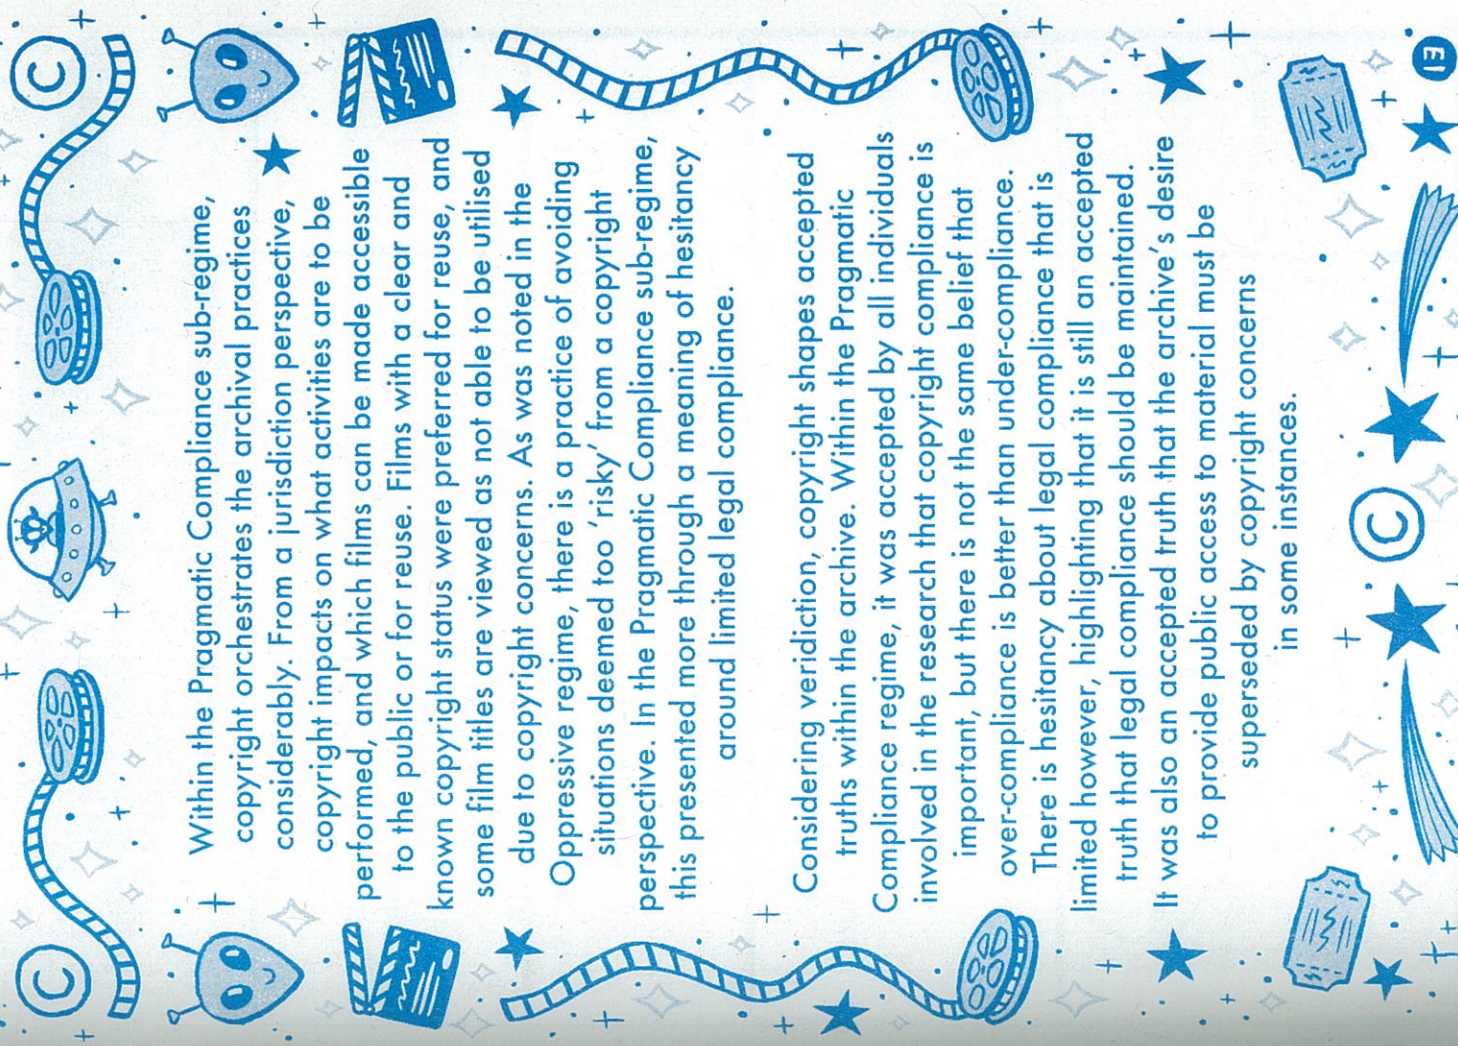 Within the Pragmatic Compliance sub-regime,
copyright orchestrates the archival practices
considerably. From a jurisdiction perspective,
copyright impacts on what activities are to be
performed, and which films can be made accessible
to the public or for reuse. Films with a clear and
known copyright status were preferred for reuse, and
some film titles are viewed as not able to be utilised
due to copyright concerns. As was noted in the
Oppressive regime, there is a practice of avoiding
situations deemed too 'risky' from a copyright
perspective. In the Pragmatic Compliance sub-regime,
this presented more through a meaning of hesitancy
around limited legal compliance.
Considering veridiction, copyright shapes accepted
truths within the archive. Within the Pragmatic
Compliance regime, it was accepted by all individuals
involved in the research that copyright compliance is
important, but there is not the same belief that
over-compliance is better than under-compliance.
There is hesitancy about legal compliance that is
limited however, highlighting that it is still an accepted
truth that legal compliance should be maintained.
It was also an accepted truth that the archive's desire
to provide public access to material must be
superseded by copyright concerns
in some instances.
©
©
©
E1